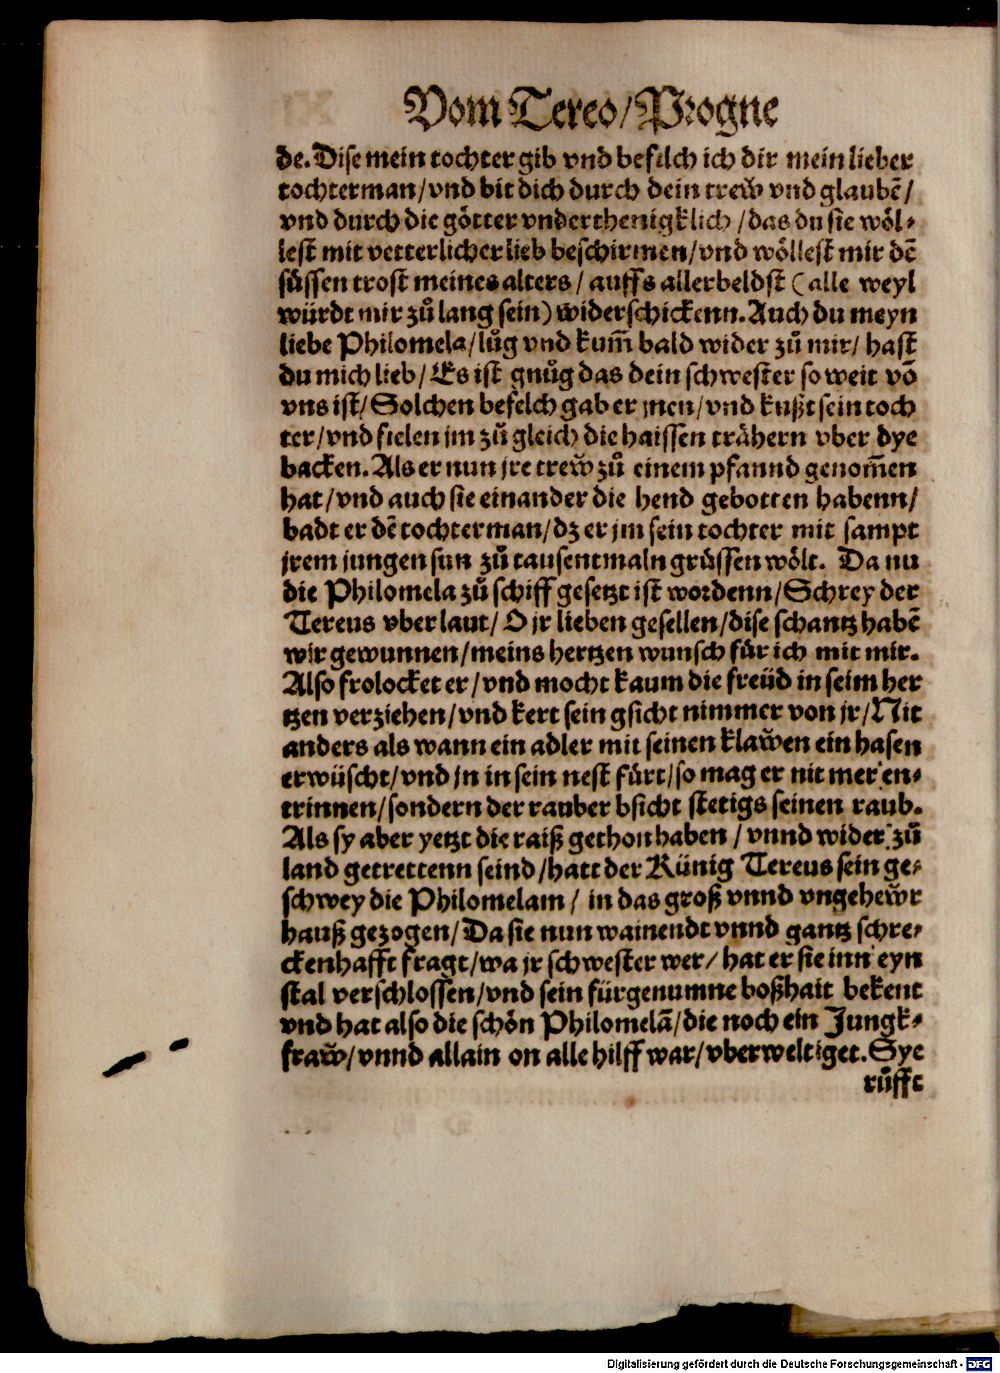 Vom Tereo/Progne
de. Dise mein tochter gib vnd befilch ich dir mein lieber
tochterman/vnd bit dich durch dein trew̃ vnd glaubẽ/
vnd durch die goͤtter vnderthenigklich/das du sie woͤl⸗
lest mit vetterlicher lieb beschirmen/vnd woͤllest mir dẽ
suͤssen trost meines alters/ auffs allerbeldst (alle weyl
wuͤrdt mir zuͦ lang sein) widerschickenn. Auch du meyn
liebe Philomela/luͦg vnd kum̃ bald wider zuͦ mir/ hast
du mich lieb/ Es ist gnuͦg das dein schwester so weit võ
vns ist/ Solchen befelch gab er jnen/vnd kußt sein toch
ter/vnd fielen jm zuͦ gleich die haissen traͤhern vber dye
backen. Als er nun jre trew̃ zuͦ einem pfannd genom̃en
hat/vnd auch sie einander die hend gebotten habenn/
badt er dẽ tochterman/dz er jm sein tochter mit sampt
jrem jungen sun zuͦ tausentmaln gruͤssen woͤlt. Da nu
die Philomela zuͦ schiff gesetzt ist wordenn/Schrey der
Tereus vber laut/ O jr lieben gesellen/dise schantz habẽ
wir gewunnen/meins hertzen wunsch fuͤr ich mit mir.
Also frolocket er/vnd mocht kaum die freuͤd in seim her
tzen verziehen/vnd kert sein gsicht nimmer von jr/Nit
anders als wann ein adler mit seinen klaw̃en ein hasen
erwuͤscht/vnd jn in sein nest fuͤrt/so mag er nit mer en⸗
trinnen/sondern der rauber bsicht stetigs seinen raub.
Als sy aber yetzt die raiß gethon haben/ vnnd wider zuͦ
land getrettenn seind/hatt der Kuͤnig Tereus sein ge⸗
schwey die Philomelam/ in das groß vnnd vngehew̃r
hauß gezogen/Da sie nun wainendt vnnd gantz schre⸗
ckenhafft fragt/wa jr schwester wer/ hat er sie inn eyn
stal verschlossen/vnd sein fuͤrgenumne boßhait bekent
vnd hat also die schoͤn Philomelã/die noch ein Jungk⸗
fraw̃/vnnd allain on alle hilff war/vberweltiget. Sye
ruͦfft
Digitalisierung gefördert durch die Deutsche Forschungsgemeinschaft - DFG